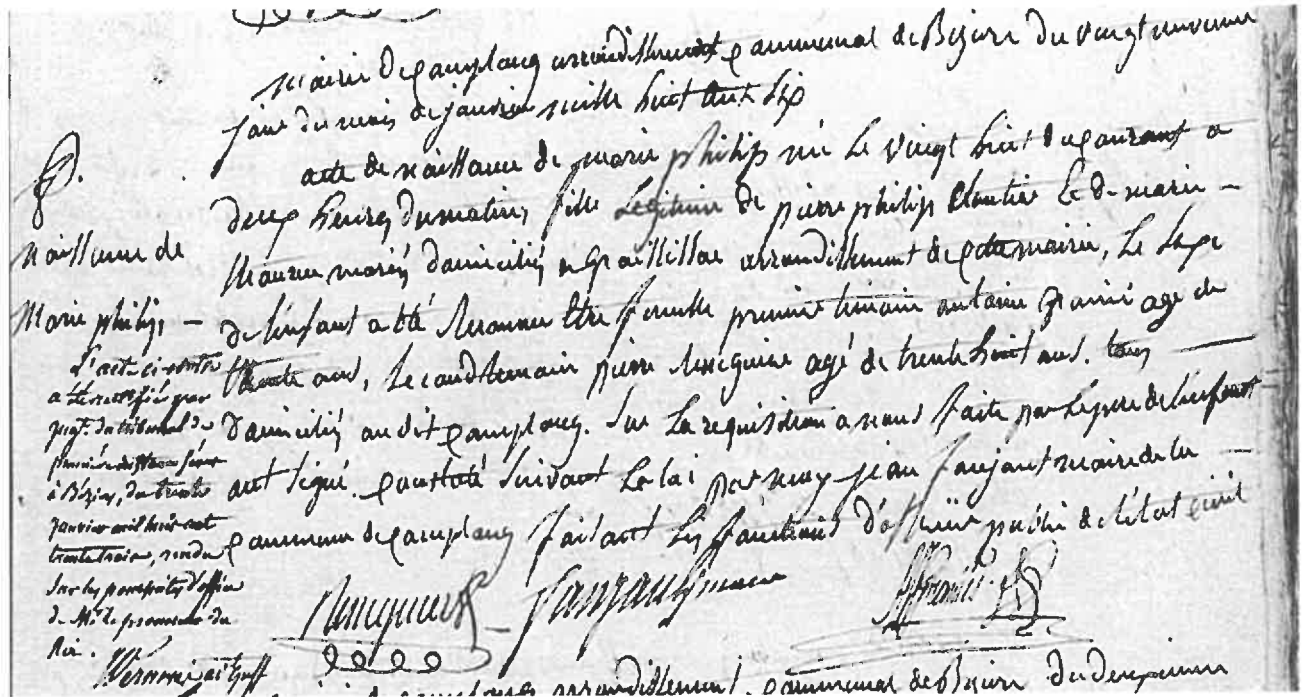 mairie de camplong arrondissement communal de Béziers du vingt neuvieme
jour du mois de janvier mille huit cent six
acte de naissance de marie philip née le vingt huit du courant a
deux heures du matin, fille legitime de pierre philip cloutier et de marie
mariés domiciliés a Graissessac arrondissement de cette mairie, le sexe
de l'enfant a été reconnu etre femelle premier temoin antoine agé de
trente ans, second temoin pierre agé de trente huit ans. tous
domiciliés au dit camplong. sur la requisition a nous faite par le pere de l'enfant
ont signé. constaté suivant la loi par moy jean maire de la
commune de camplong faisant les fonctions d'officier public de l'état civil
maire
Naissance de
Marie philip
L'acte ci-contre
a été rectifié par
jugt. du tribunal de
première instance séant
à Béziers, du trente
janvier mil huit cent
trente trois, rendu
sur les poursuites d'office
de Mr. le procureur du
Roi.
arrondissement communal de Béziers du deuxieme